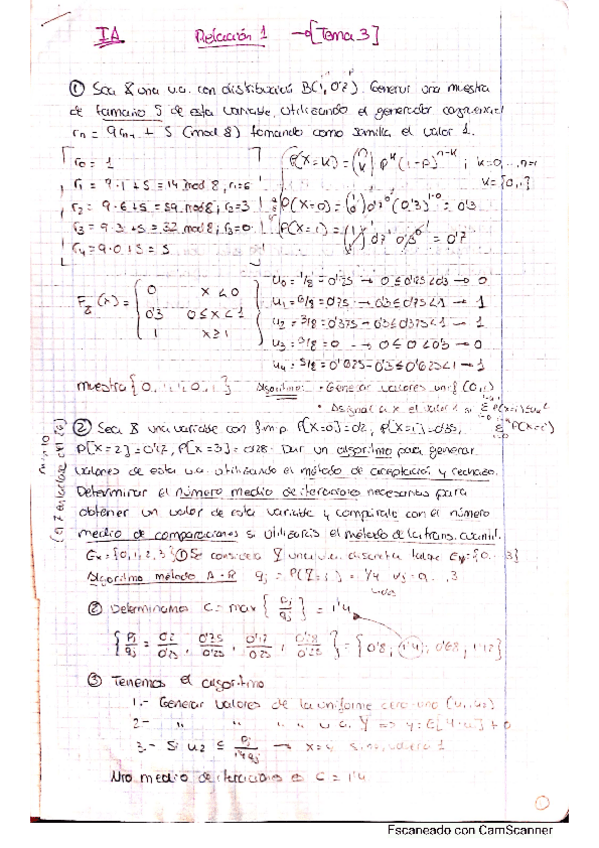 IA Relación 1 → [Tema 3]
① Sea X una v.a. con distribución B(1, 0'7). Generar una muestra
de tamaño 5 de esta variable, utilizando el generador congruencial
rn = 9rn-1 + 5 (mod 8) tomando como semilla el valor 1.
r0 = 1
r1 = 9·1+5 = 14 mod 8, r1=6
r2 = 9·6+5 = 59 mod 8; r2=3
r3 = 9·3+5 = 32 mod 8; r3=0
r4 = 9·0+5 = 5
P(X=k) = (n k) p^k (1-p)^n-k ; k=0,...,n
k={0,1}
P(X=0) = (1 0) 0'7^0 (0'3)^1-0 = 0'3
P(X=1) = (1 1) 0'7^1 0'3^0 = 0'7
F_X(x) = { 0 x<0
0'3 0≤x<1
1 x≥1
u0 = 1/8 = 0'125 → 0≤0'125<0'3 → 0
u1 = 6/8 = 0'75 → 0'3≤0'75<1 → 1
u2 = 3/8 = 0'375 → 0'3≤0'375<1 → 1
u3 = 0/8 = 0 → 0≤0<0'3 → 0
u4 = 5/8 = 0'625 → 0'3≤0'625<1 → 1
muestra {0,1,1,0,1} Algoritmo: • Generar valores unif (0,1)
• Asignar a x el valor
② Sea X una variable con f.m.p. P[X=0]=0'2, P[X=1]=0'35,
P[X=2]=0'17, P[X=3]=0'28. Dar un algoritmo para generar
valores de esta v.a. utilizando el método de aceptación y rechazo.
Determinar el número medio de iteraciones necesarias para
obtener un valor de esta variable y compáralo con el número
medio de comparaciones si utilizáis el método de la trans. cuantil.
Ex={0,1,2,3} ① Se considera Y una v.a. discreta Ey={0...3}
Algoritmo método A-R qj = P(Y=j) = 1/4
② Determinamos C = max {pj/qj} = 1'4
{pj/qj = 0'2/0'25, 0'35/0'25, 0'17/0'25, 0'28/0'25} = {0'8, 1'4, 0'68, 1'12}
③ Tenemos el algoritmo
1.- Generar valores de la uniforme cero-uno (u1,u2)
2.- " " " " v.a. Y ⇒ y=E[4·u1]+0
3.- Si u2 ≤ pj/1'4qj → x=y si no, volver a 1
Nro medio de iteraciones es C = 1'4
Escaneado con CamScanner